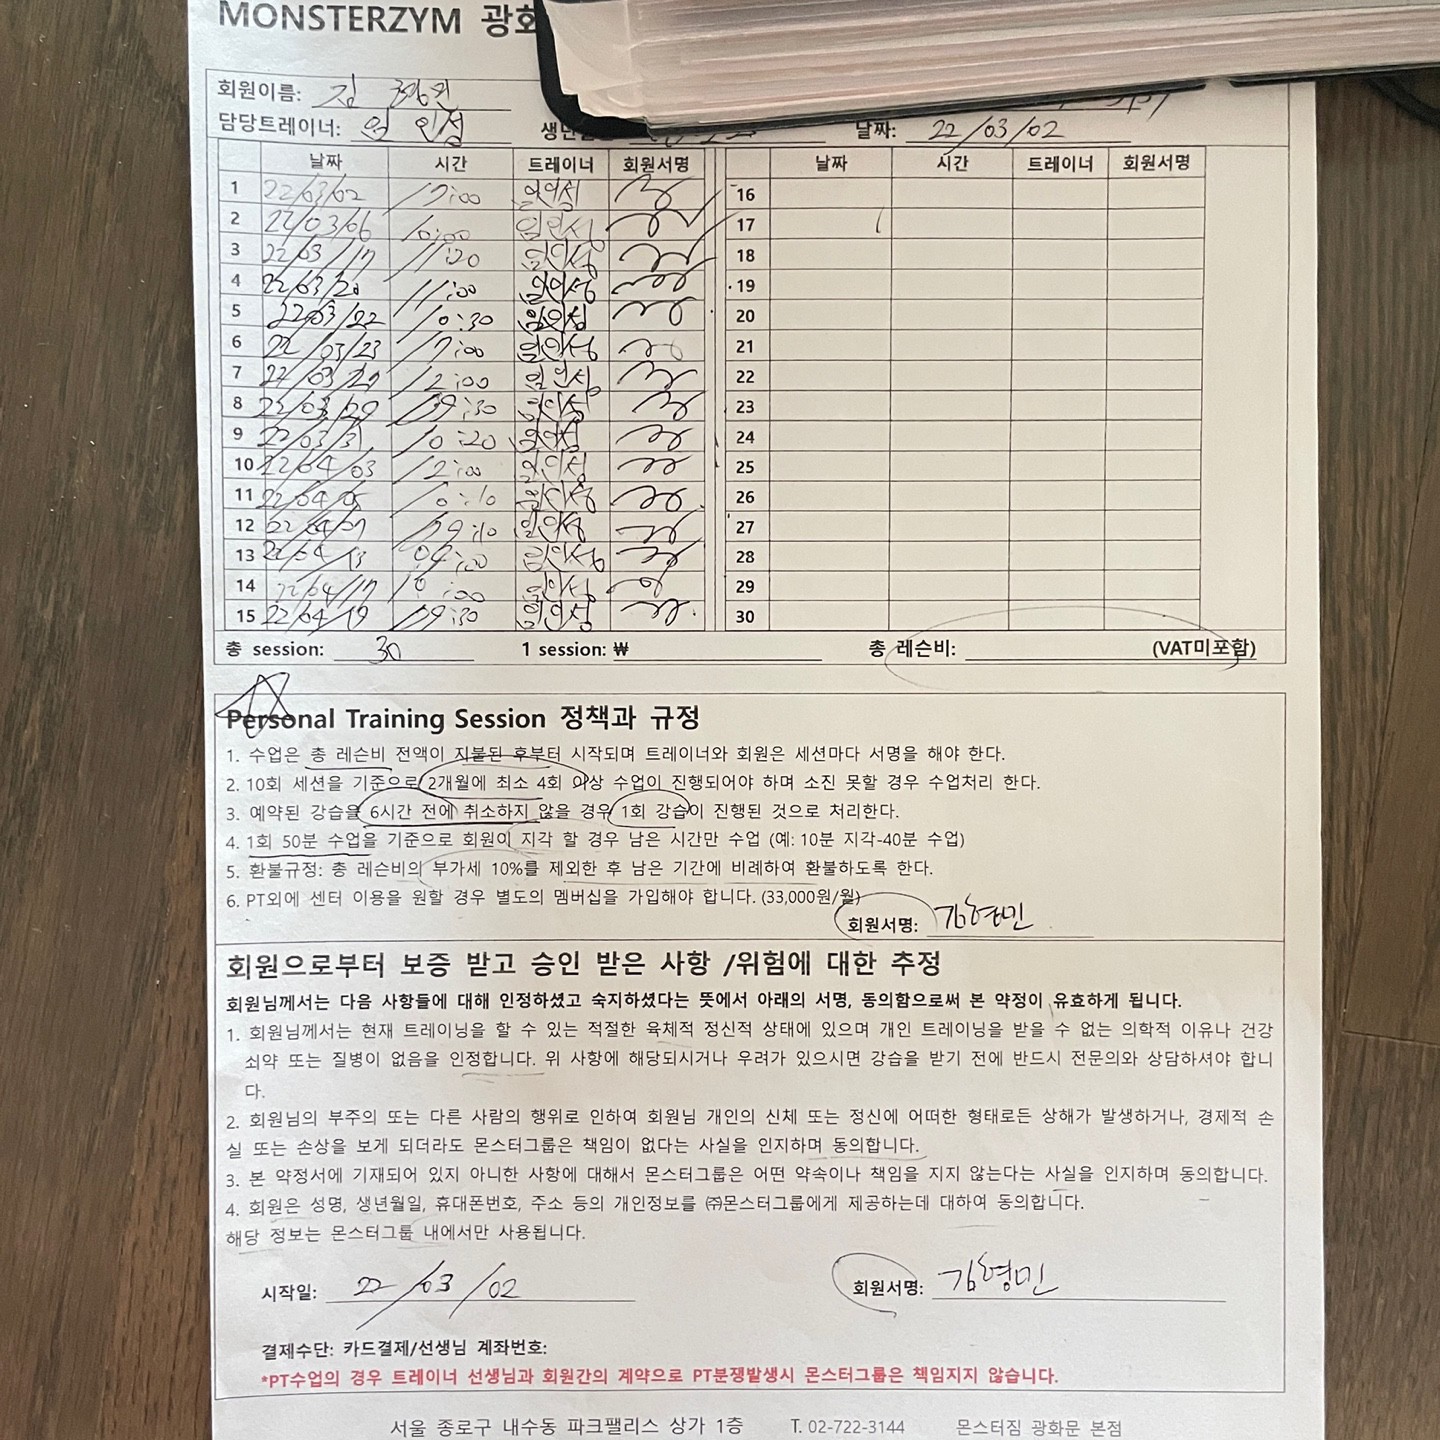 MONSTERZYM 광화
회원이름: 김
담당트레이너: 임인성 생년 날짜: 22/03/02
날짜 시간 트레이너 회원서명 날짜 시간 트레이너 회원서명
1 22/03/02 17:00 임인성 16
2 22/03/06 10:00 임인성 17
3 22/03/17 11:20 임인성 18
4 22/03/20 11:00 임인성 19
5 22/03/22 10:30 임인성 20
6 22/03/23 17:00 임인성 21
7 22/03/27 12:00 임인성 22
8 22/03/29 09:30 임인성 23
9 22/03/31 10:20 임인성 24
10 22/04/03 12:00 임인성 25
11 22/04/05 10:10 임인성 26
12 22/04/07 09:10 임인성 27
13 22/04/13 임인성 28
14 22/04/17 10:00 임인성 29
15 22/04/19 09:30 임인성 30
총 session: 30 1 session: ₩ 총 레슨비: (VAT미포함)
Personal Training Session 정책과 규정
1. 수업은 총 레슨비 전액이 지불된 후부터 시작되며 트레이너와 회원은 세션마다 서명을 해야 한다.
2. 10회 세션을 기준으로 2개월에 최소 4회 이상 수업이 진행되어야 하며 소진 못할 경우 수업처리 한다.
3. 예약된 강습을 6시간 전에 취소하지 않을 경우 1회 강습이 진행된 것으로 처리한다.
4. 1회 50분 수업을 기준으로 회원이 지각 할 경우 남은 시간만 수업 (예: 10분 지각-40분 수업)
5. 환불규정: 총 레슨비의 부가세 10%를 제외한 후 남은 기간에 비례하여 환불하도록 한다.
6. PT외에 센터 이용을 원할 경우 별도의 멤버십을 가입해야 합니다. (33,000원/월)
회원서명: 김형민
회원으로부터 보증 받고 승인 받은 사항 /위험에 대한 추정
회원님께서는 다음 사항들에 대해 인정하셨고 숙지하셨다는 뜻에서 아래의 서명, 동의함으로써 본 약정이 유효하게 됩니다.
1. 회원님께서는 현재 트레이닝을 할 수 있는 적절한 육체적 정신적 상태에 있으며 개인 트레이닝을 받을 수 없는 의학적 이유나 건강
쇠약 또는 질병이 없음을 인정합니다. 위 사항에 해당되시거나 우려가 있으시면 강습을 받기 전에 반드시 전문의와 상담하셔야 합니
다.
2. 회원님의 부주의 또는 다른 사람의 행위로 인하여 회원님 개인의 신체 또는 정신에 어떠한 형태로든 상해가 발생하거나, 경제적 손
실 또는 손상을 보게 되더라도 몬스터그룹은 책임이 없다는 사실을 인지하며 동의합니다.
3. 본 약정서에 기재되어 있지 아니한 사항에 대해서 몬스터그룹은 어떤 약속이나 책임을 지지 않는다는 사실을 인지하며 동의합니다.
4. 회원은 성명, 생년월일, 휴대폰번호, 주소 등의 개인정보를 ㈜몬스터그룹에게 제공하는데 대하여 동의합니다.
해당 정보는 몬스터그룹 내에서만 사용됩니다.
시작일: 22/03/02 회원서명: 김형민
결제수단: 카드결제/선생님 계좌번호:
*PT수업의 경우 트레이너 선생님과 회원간의 계약으로 PT분쟁발생시 몬스터그룹은 책임지지 않습니다.
서울 종로구 내수동 파크팰리스 상가 1층 T. 02-722-3144 몬스터짐 광화문 본점